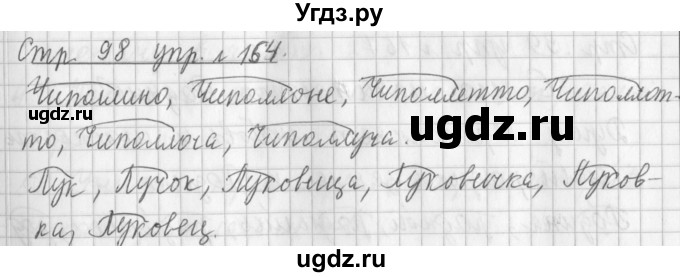 Угдз.ру
Стр. 98 упр. № 164.
Чиполлино, Чиполлоне, Чиполлетто, Чиполлот-
то, Чиполлоча, Чиполлуча.
ugdz.ru
ugdz.ru
Лук, Лучок, Луковица, Луковичка, Луков-
ка, Луковец.
ugdz.ru
ugdz.ru